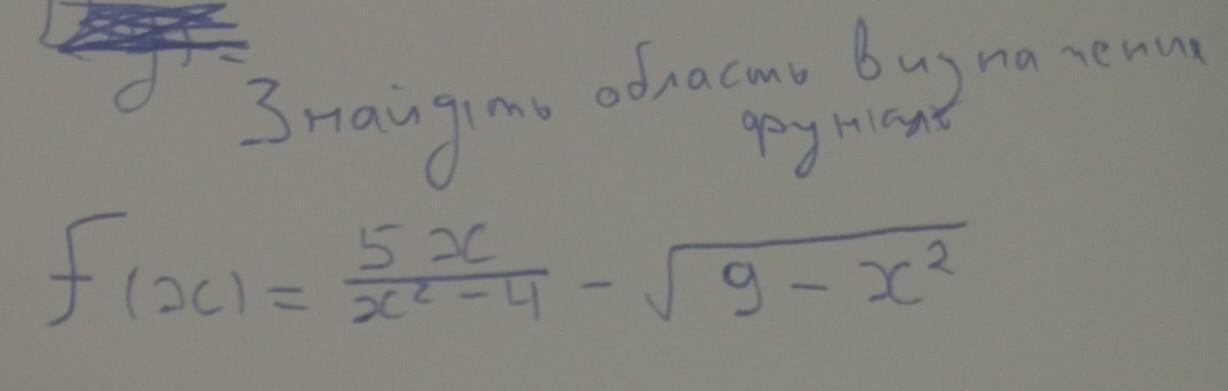 Знайдіть область визначення
функції
f(x) = \frac{5x}{x^2-4} - \sqrt{9-x^2}